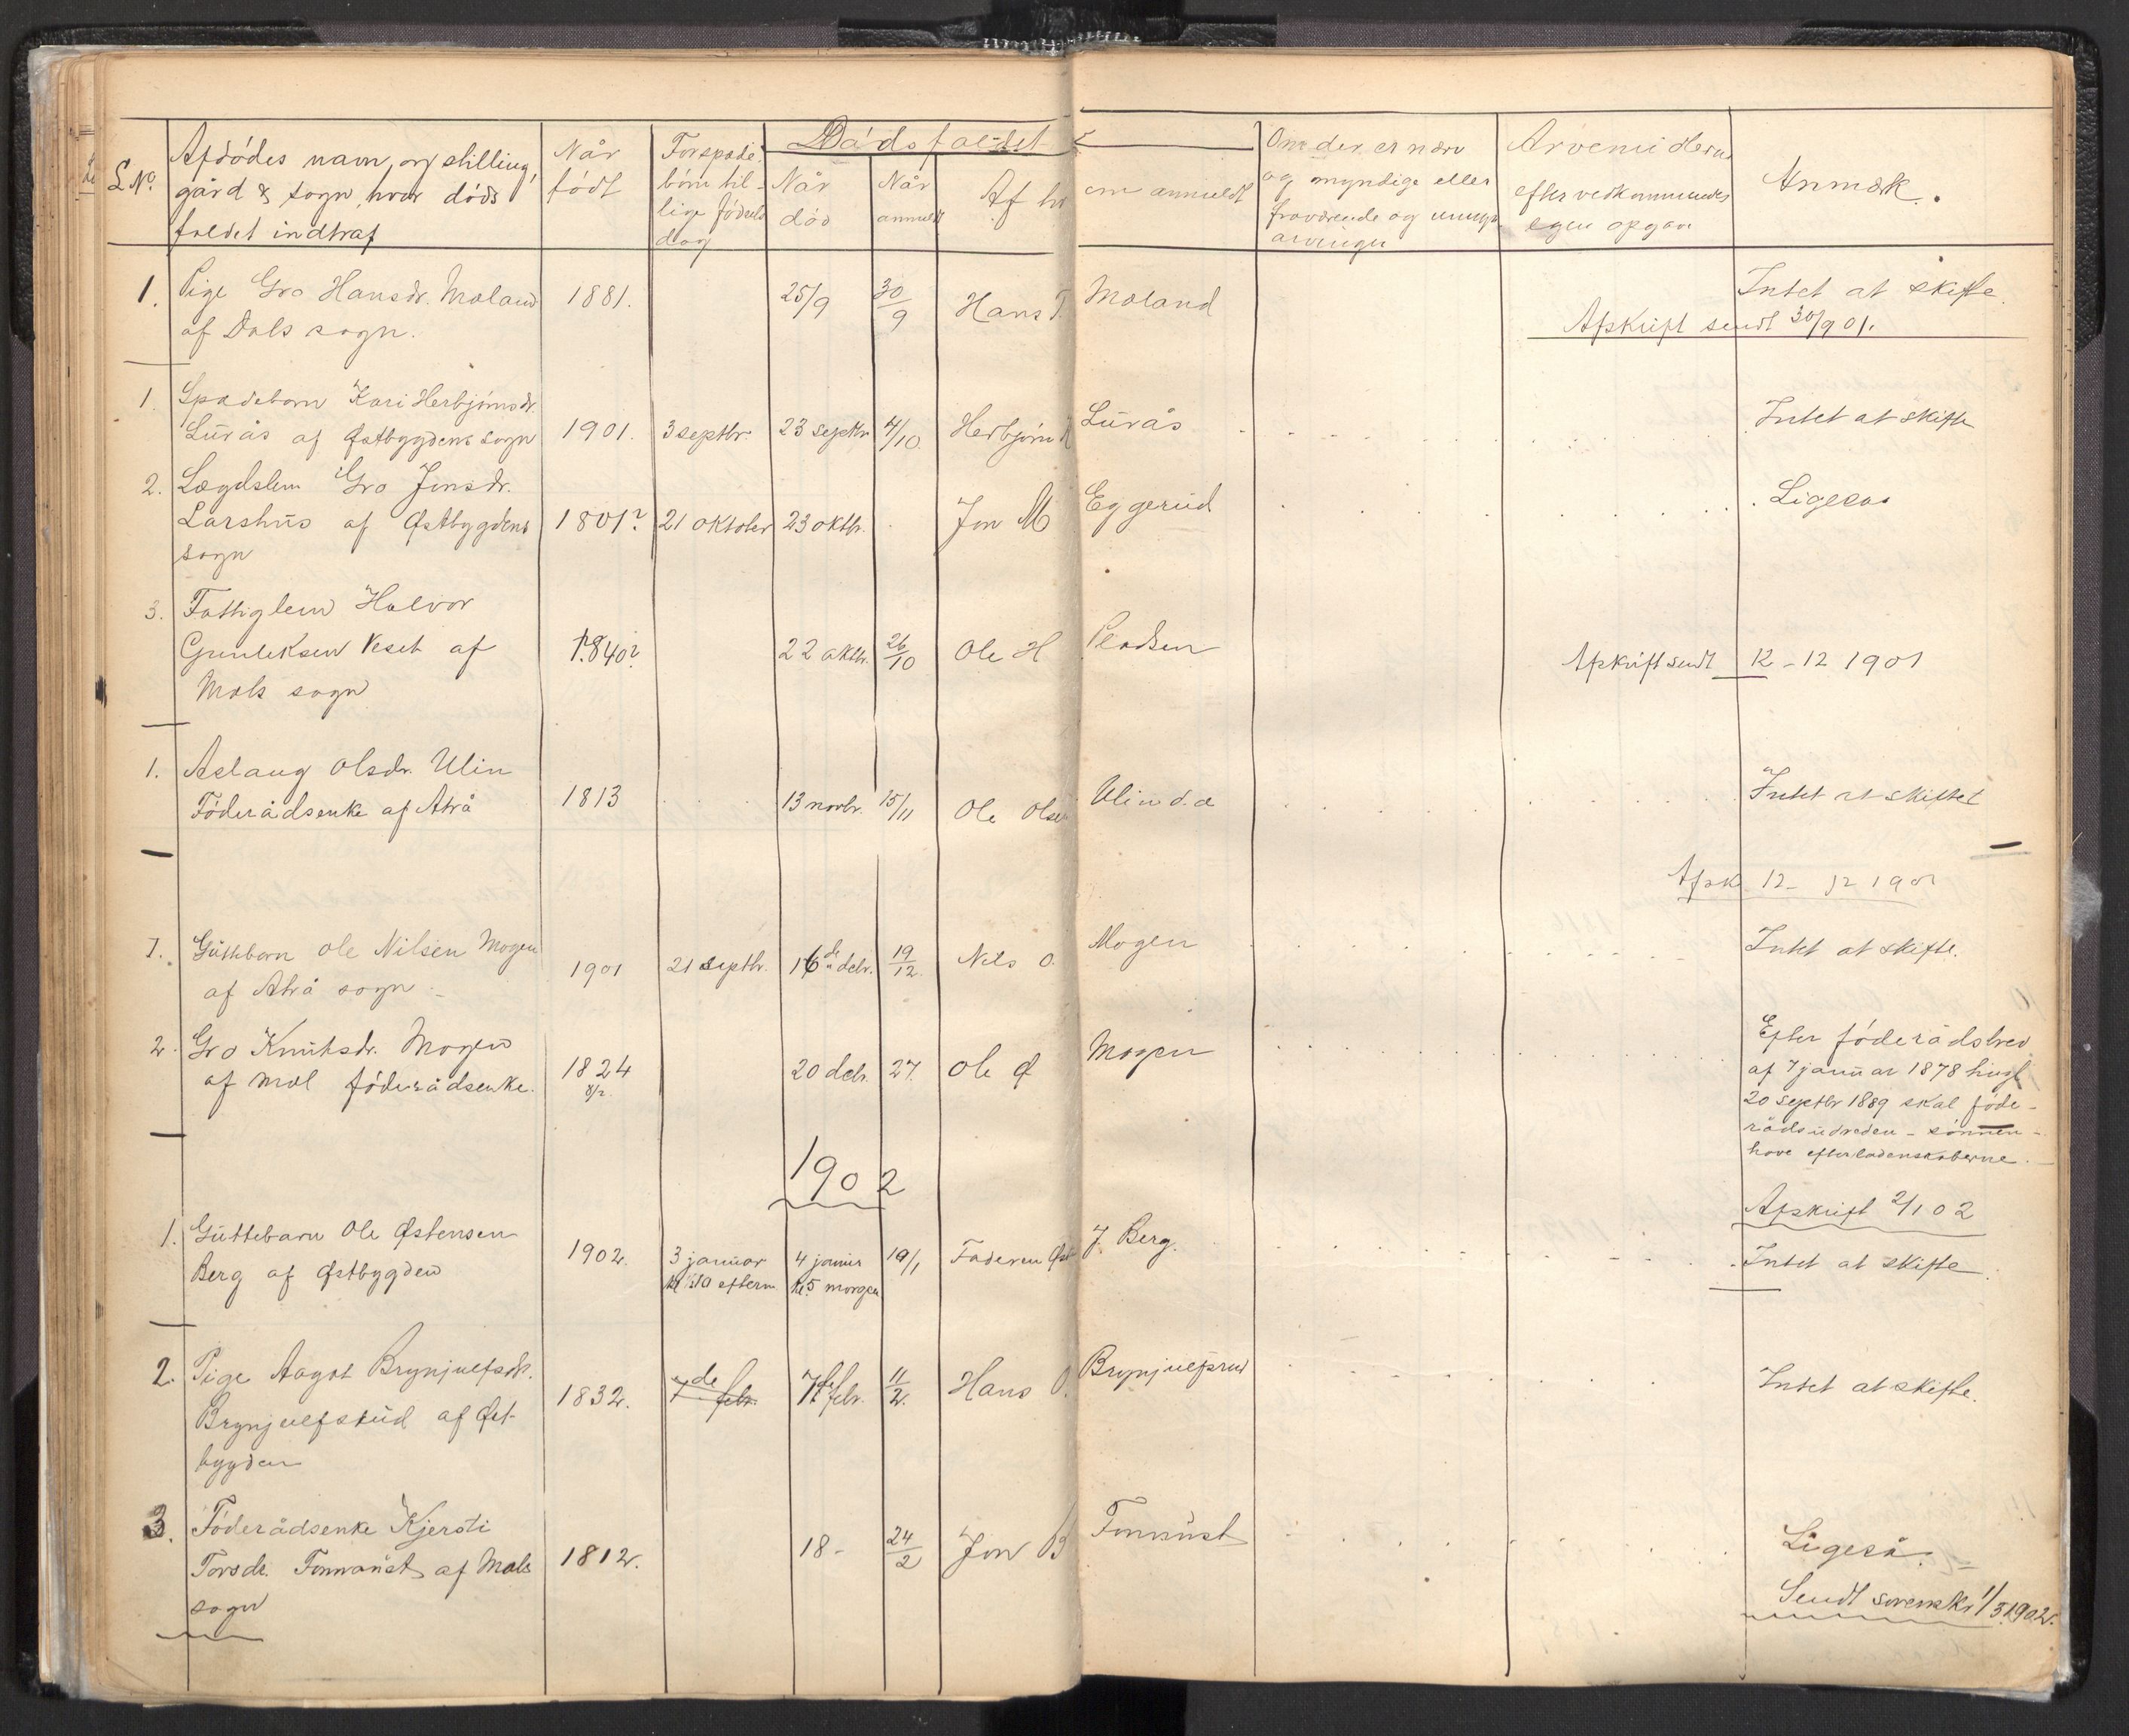 L No. Afdödes navn, og stilling, gård & sogn, hvor döds faldet indtraf
Når födt
For spæde börn til- lige födsels dag
Dödsfaldet
Når död
Når anmeldt
Af hv em anmeldt
Om der er nærv og myndige eller fraværende og umynd. arvinger
Arvemidlerne efter vedkommendes egen opgave
Anmærk.
1. Pige Gro Hansdr. Moland 1881. 25/9 30/9 Hans T. Moland Intet at skifte.
af Dals sogn.
Afskrift sendt 30/9 01.
1. Spædebarn Kari Herbjörnsdr.
Lurås af Østbygdens sogn 1901. 3 septbr 23 septbr 4/10. Herbjörn Lurås Intet at skifte
2. Lægdslem Gro Jonsdr.
Larshus af Østbygdens 1801? 21 oktober 23 oktbr. Jon M Eggerud Ligesaa
sogn
3. Fattiglem Halvor
Gunleksen Veset af 1840? 22 oktbr. 26/10 Ole H
Mæls sogn
Afskrift sendt 12 - 12 1901
1. Aslaug Olsdr. Ulin
Föderådsenke af Atrå 1813 13 novbr. 15/11 Ole Olsen Ulin d.a Intet at skiftet
Afsk 12 - 12 1901
1. Guttebarn Ole Nilsen Mogen 1901 21 septbr. 16de decbr. 19/12. Nils O. Mogen Intet at skifte.
af Atrå sogn -
2. Gro Knutsdr. Mogen
af Mæl föderådsenke. 1824 8/2. 20 decbr. 27. Ole Ø Mogen
Efter föderådsbrev
af 7 januar 1878 tingl
20 septbr 1889 skal föde-
rådsudreden - sönnen -
have efterladenskaberne.
1902
Afskrift 2/1 02
1. Guttebarn Ole Østensen
Berg af Østbygden 1902. 3 januar 4 januar 10/1 Faderen Øst J. Berg. Intet at skifte.
kl. 10 efterm kl. 5 morgen
2. Pige Aagot Brynjulfsdr.
Brynjulfsrud af Øst- 1832. 7de febr. 7de febr. 11/2. Hans O. Brynjulfsrud Intet at skifte.
bygden
3. Föderådsenke Kjersti
Torsdr. af Mæls 1812. 18 - 24/2 Jon B Ligeså.
sogn
Sendt sorenskr 1/3 1902.